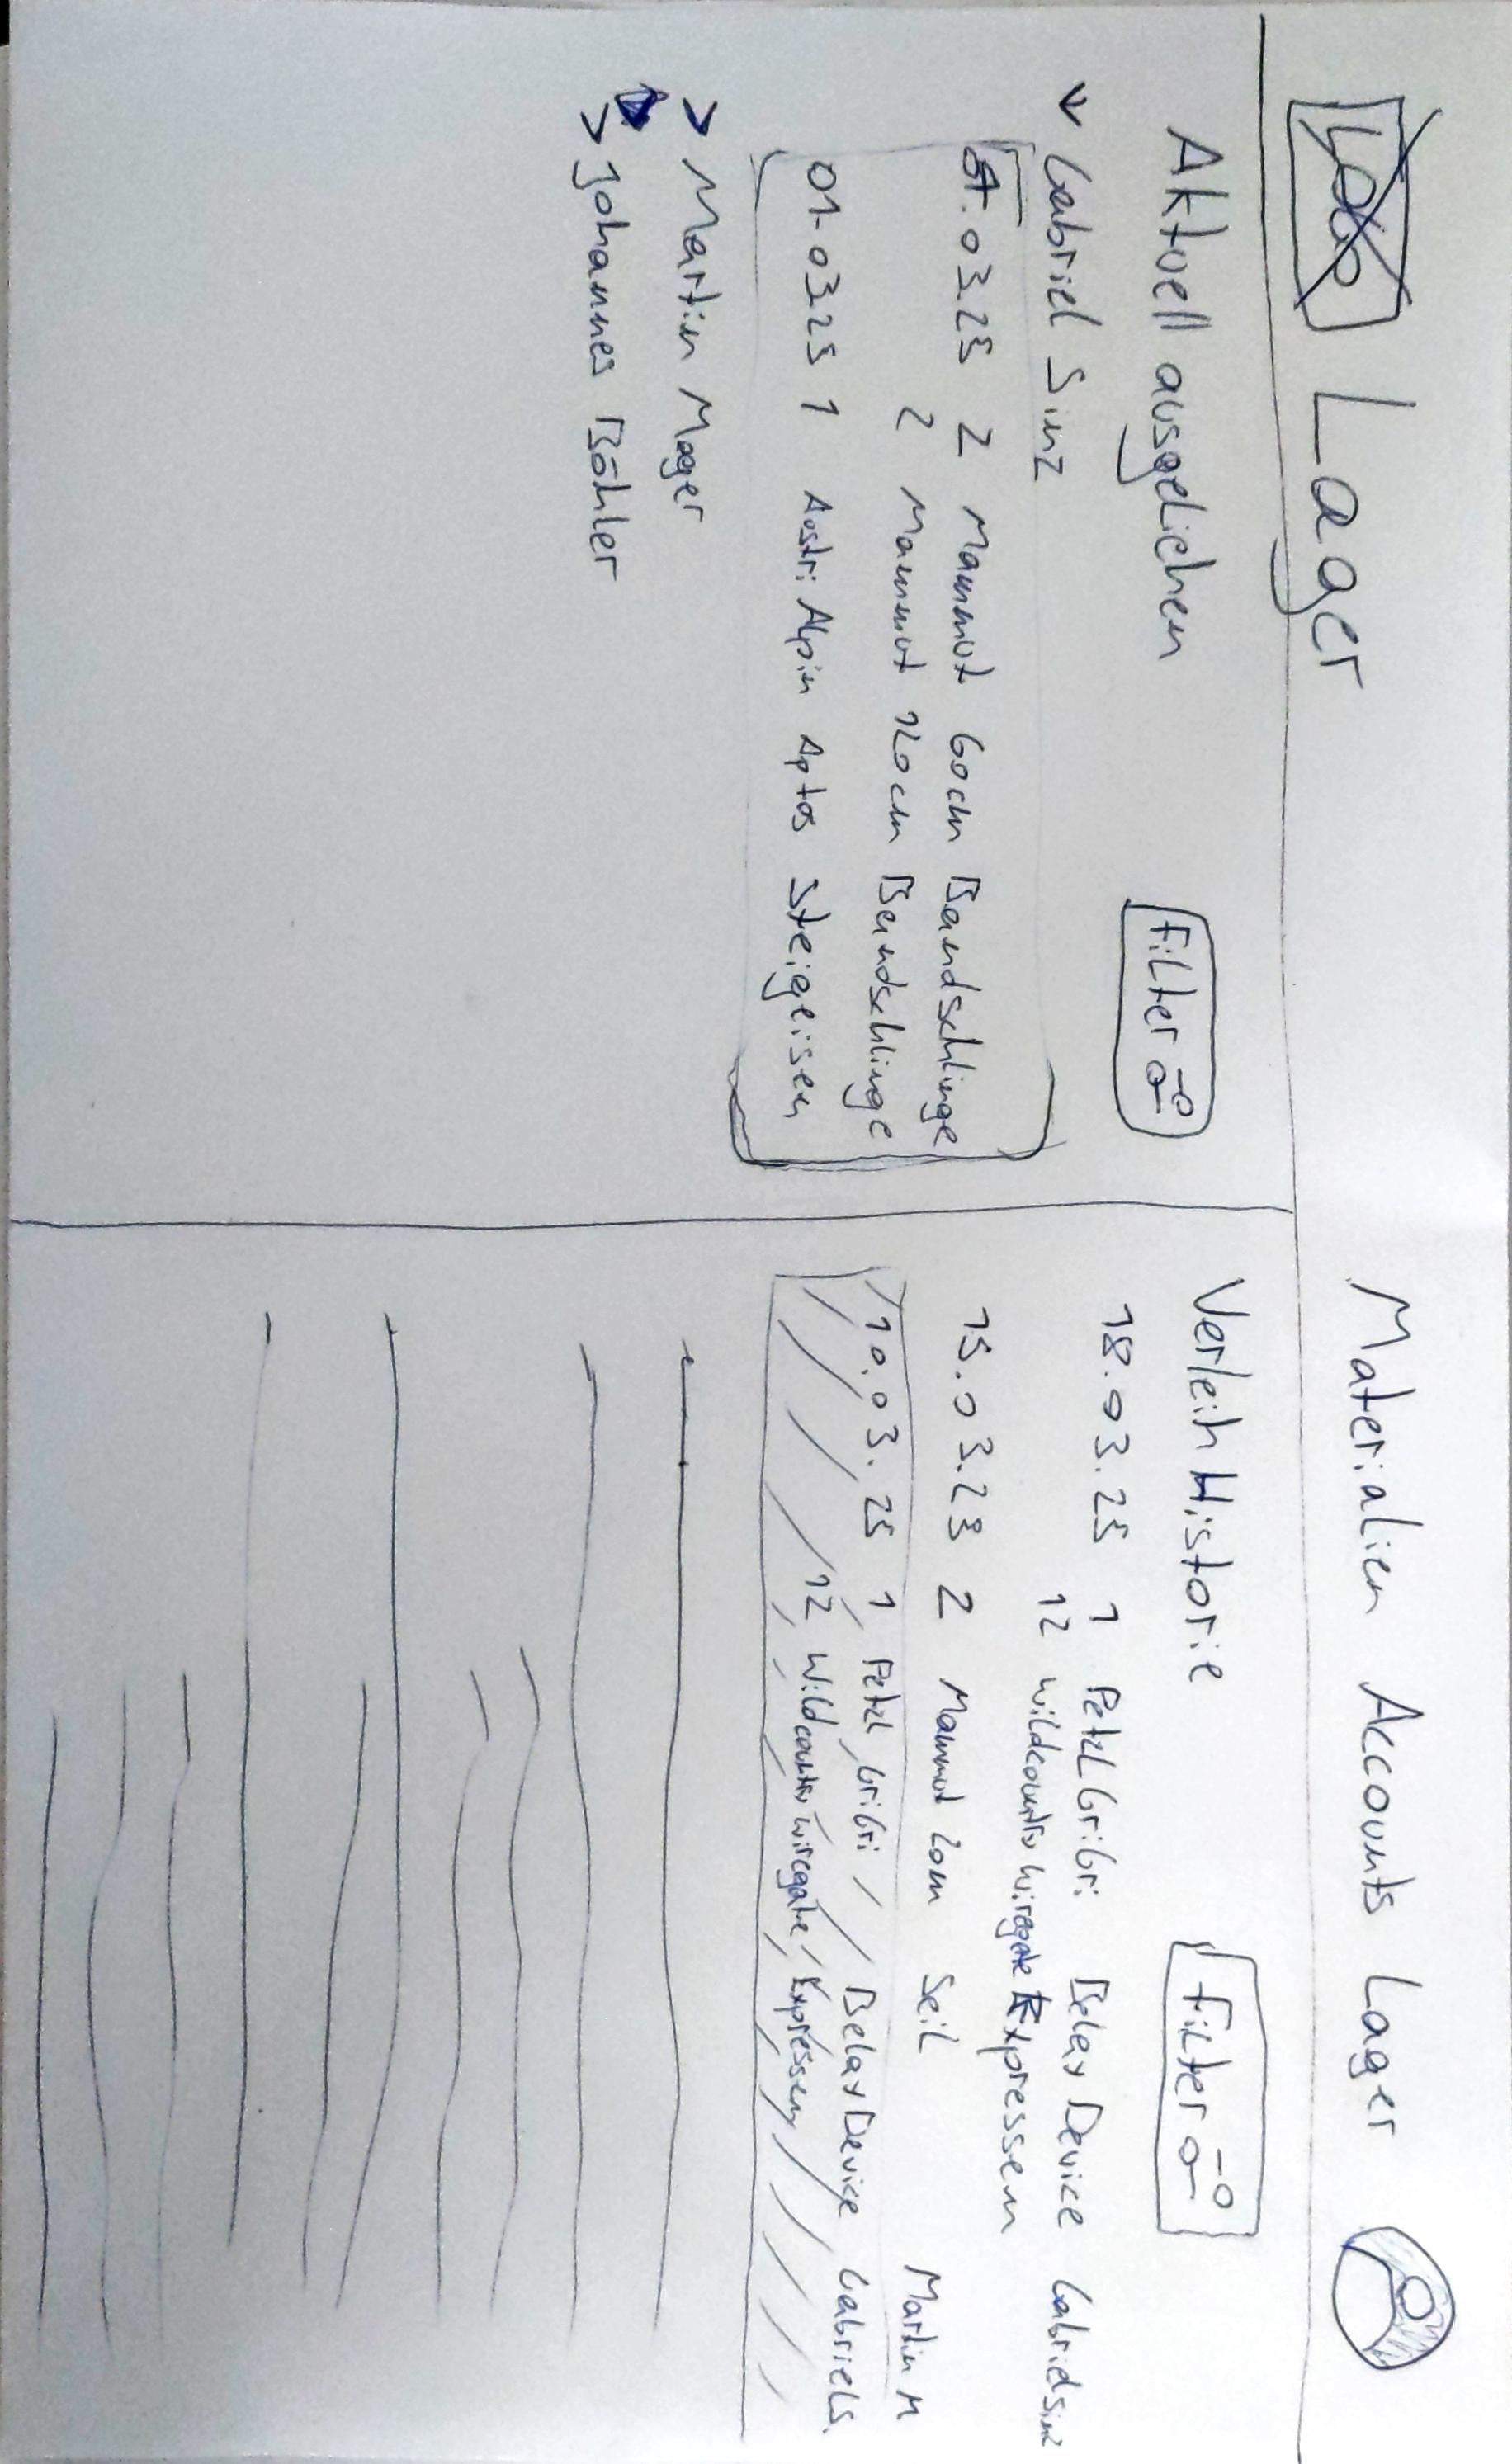 Logo Lager Materialien Accounts Lager
Aktuell ausgeliehen Filter
Gabriel Sinz
01.03.25 2 Mammut 60cm Bandschlinge
2 Mammut 120cm Bandschlinge
01.03.25 1 AustriAlpin Aptos Steigeisen
> Martin Mager
> Johannes Böhler
Verleih Historie Filter
18.03.25 1 Petzl GriGri Belay Device Gabriel Sinz
12 Wildcountry Wiregate Expressen
15.03.25 2 Mammut 20m Seil Martin M
10.03.25 1 Petzl GriGri Belay Device Gabriel S.
12 Wildcountry Wiregate Expressen